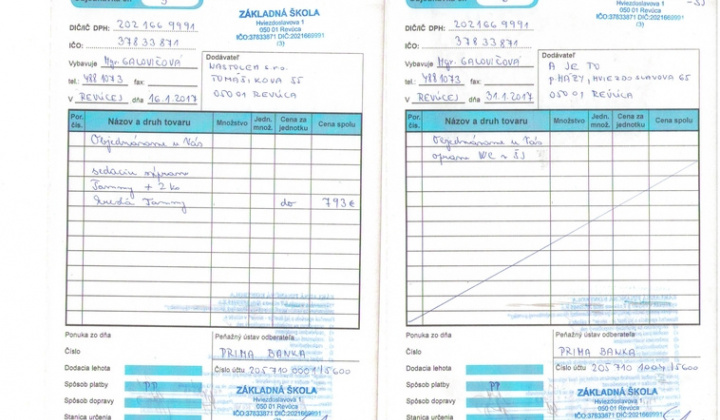 ZÁKLADNÁ ŠKOLA
Hviezdoslavova 1
050 01 Revúca
IČO:37833871 DIČ:2021669991
(3)
DIČ/IČ DPH: 202 166 9991
IČO: 37833871
Vybavuje Mgr. GALOVIČOVÁ
tel.: 488 1073 fax:
V REVÚCEJ dňa 16.1.2017
Dodávateľ
TOMÁŠIKOVA 55
050 01 REVÚCA
Por. čís. Názov a druh tovaru Množstvo Jedn. množ. Cena za jednotku Cena spolu
Objednávame u Vás
sedaciu súpravu
Tammy + 2 ks
kreslá Tammy do 793 €
Ponuka zo dňa
Číslo
Dodacia lehota
Spôsob platby PP
Spôsob dopravy
Stanica určenia
Peňažný ústav odberateľa
PRIMA BANKA
Číslo účtu 205 710 0001/5600
ZÁKLADNÁ ŠKOLA
Hviezdoslavova 1
050 01 Revúca
IČO:37833871 DIČ:2021669991
ZÁKLADNÁ ŠKOLA
Hviezdoslavova 1
050 01 Revúca
IČO:37833871 DIČ:2021669991
(3)
DIČ/IČ DPH: 202 166 9991
IČO: 37833871
Vybavuje Mgr. GALOVIČOVÁ
tel.: 488 1073 fax:
V REVÚCEJ dňa 31.1.2017
Dodávateľ
A JE TO
HVIEZDOSLAVOVA 65
050 01 REVÚCA
Por. čís. Názov a druh tovaru Množstvo Jedn. množ. Cena za jednotku Cena spolu
Objednávame u Vás
opravu WC v ŠJ
Ponuka zo dňa
Číslo
Dodacia lehota
Spôsob platby PP
Spôsob dopravy
Stanica určenia
Peňažný ústav odberateľa
PRIMA BANKA
Číslo účtu 205 710 1004/5600
ZÁKLADNÁ ŠKOLA
Hviezdoslavova 1
050 01 Revúca
IČO:37833871 DIČ:2021669991